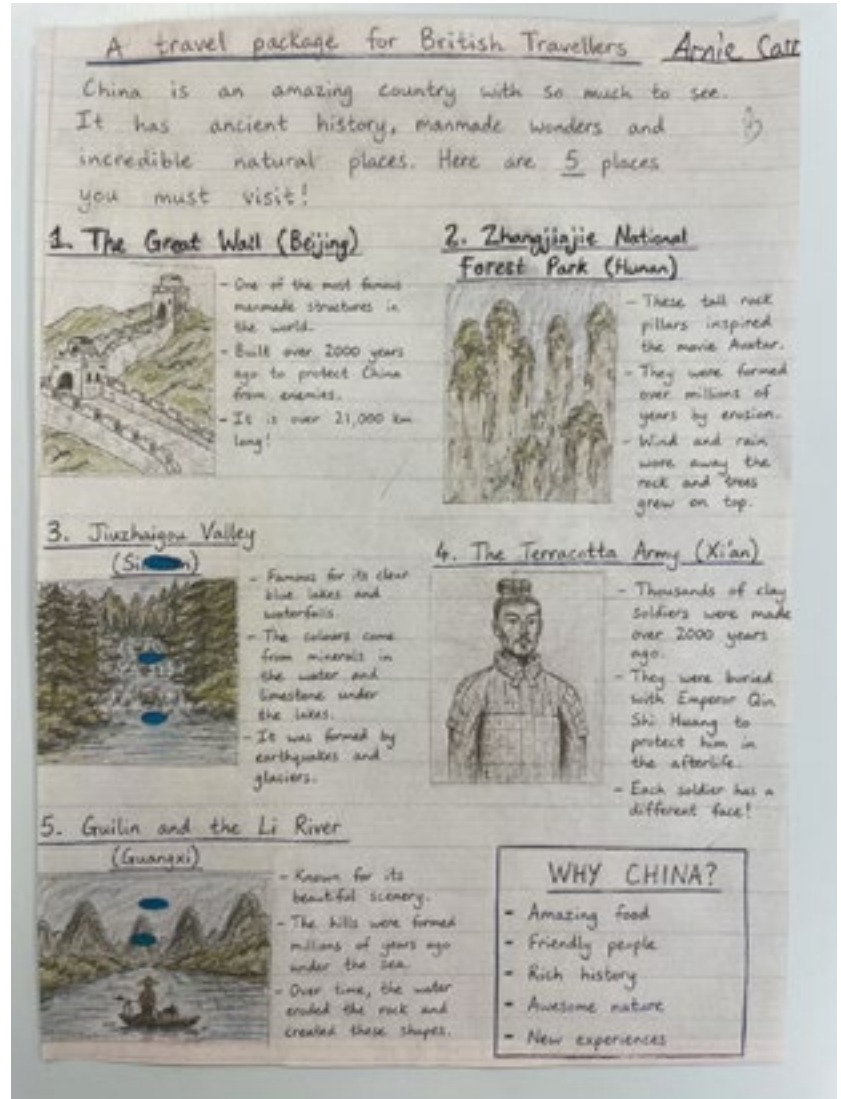 A travel package for British Travellers Arnie Carr
China is an amazing country with so much to see.
It has ancient history, manmade wonders and
incredible natural places. Here are 5 places
you must visit!
1. The Great Wall (Beijing)
- One of the most famous
manmade structures in
the world.
- Built over 2000 years
ago to protect China
from enemies.
- It is over 21,000 km
long!
2. Zhangjinjie National
Forest Park (Hunan)
- These tall rock
pillars inspired
the movie Avatar.
- They were formed
over millions of
years by erosion.
- Wind and rain
wore away the
rock and trees
grew on top.
3. Jiuzhaigou Valley
- Famous for its clear
blue lakes and
waterfalls.
- The colours come
from minerals in
the water and
limestone under
the lakes.
- It was formed by
earthquakes and
glaciers.
4. The Terracotta Army (Xi'an)
- Thousands of clay
soldiers were made
over 2000 years
ago.
- They were buried
with Emperor Qin
Shi Huang to
protect him in
the afterlife.
- Each soldier has a
different face!
5. Guilin and the Li River
(Guangxi)
- Known for its
beautiful scenery.
- The hills were formed
millions of years ago
under the sea.
- Over time, the water
eroded the rock and
created these shapes.
WHY CHINA?
- Amazing food
- Friendly people
- Rich history
- Awesome nature
- New experiences